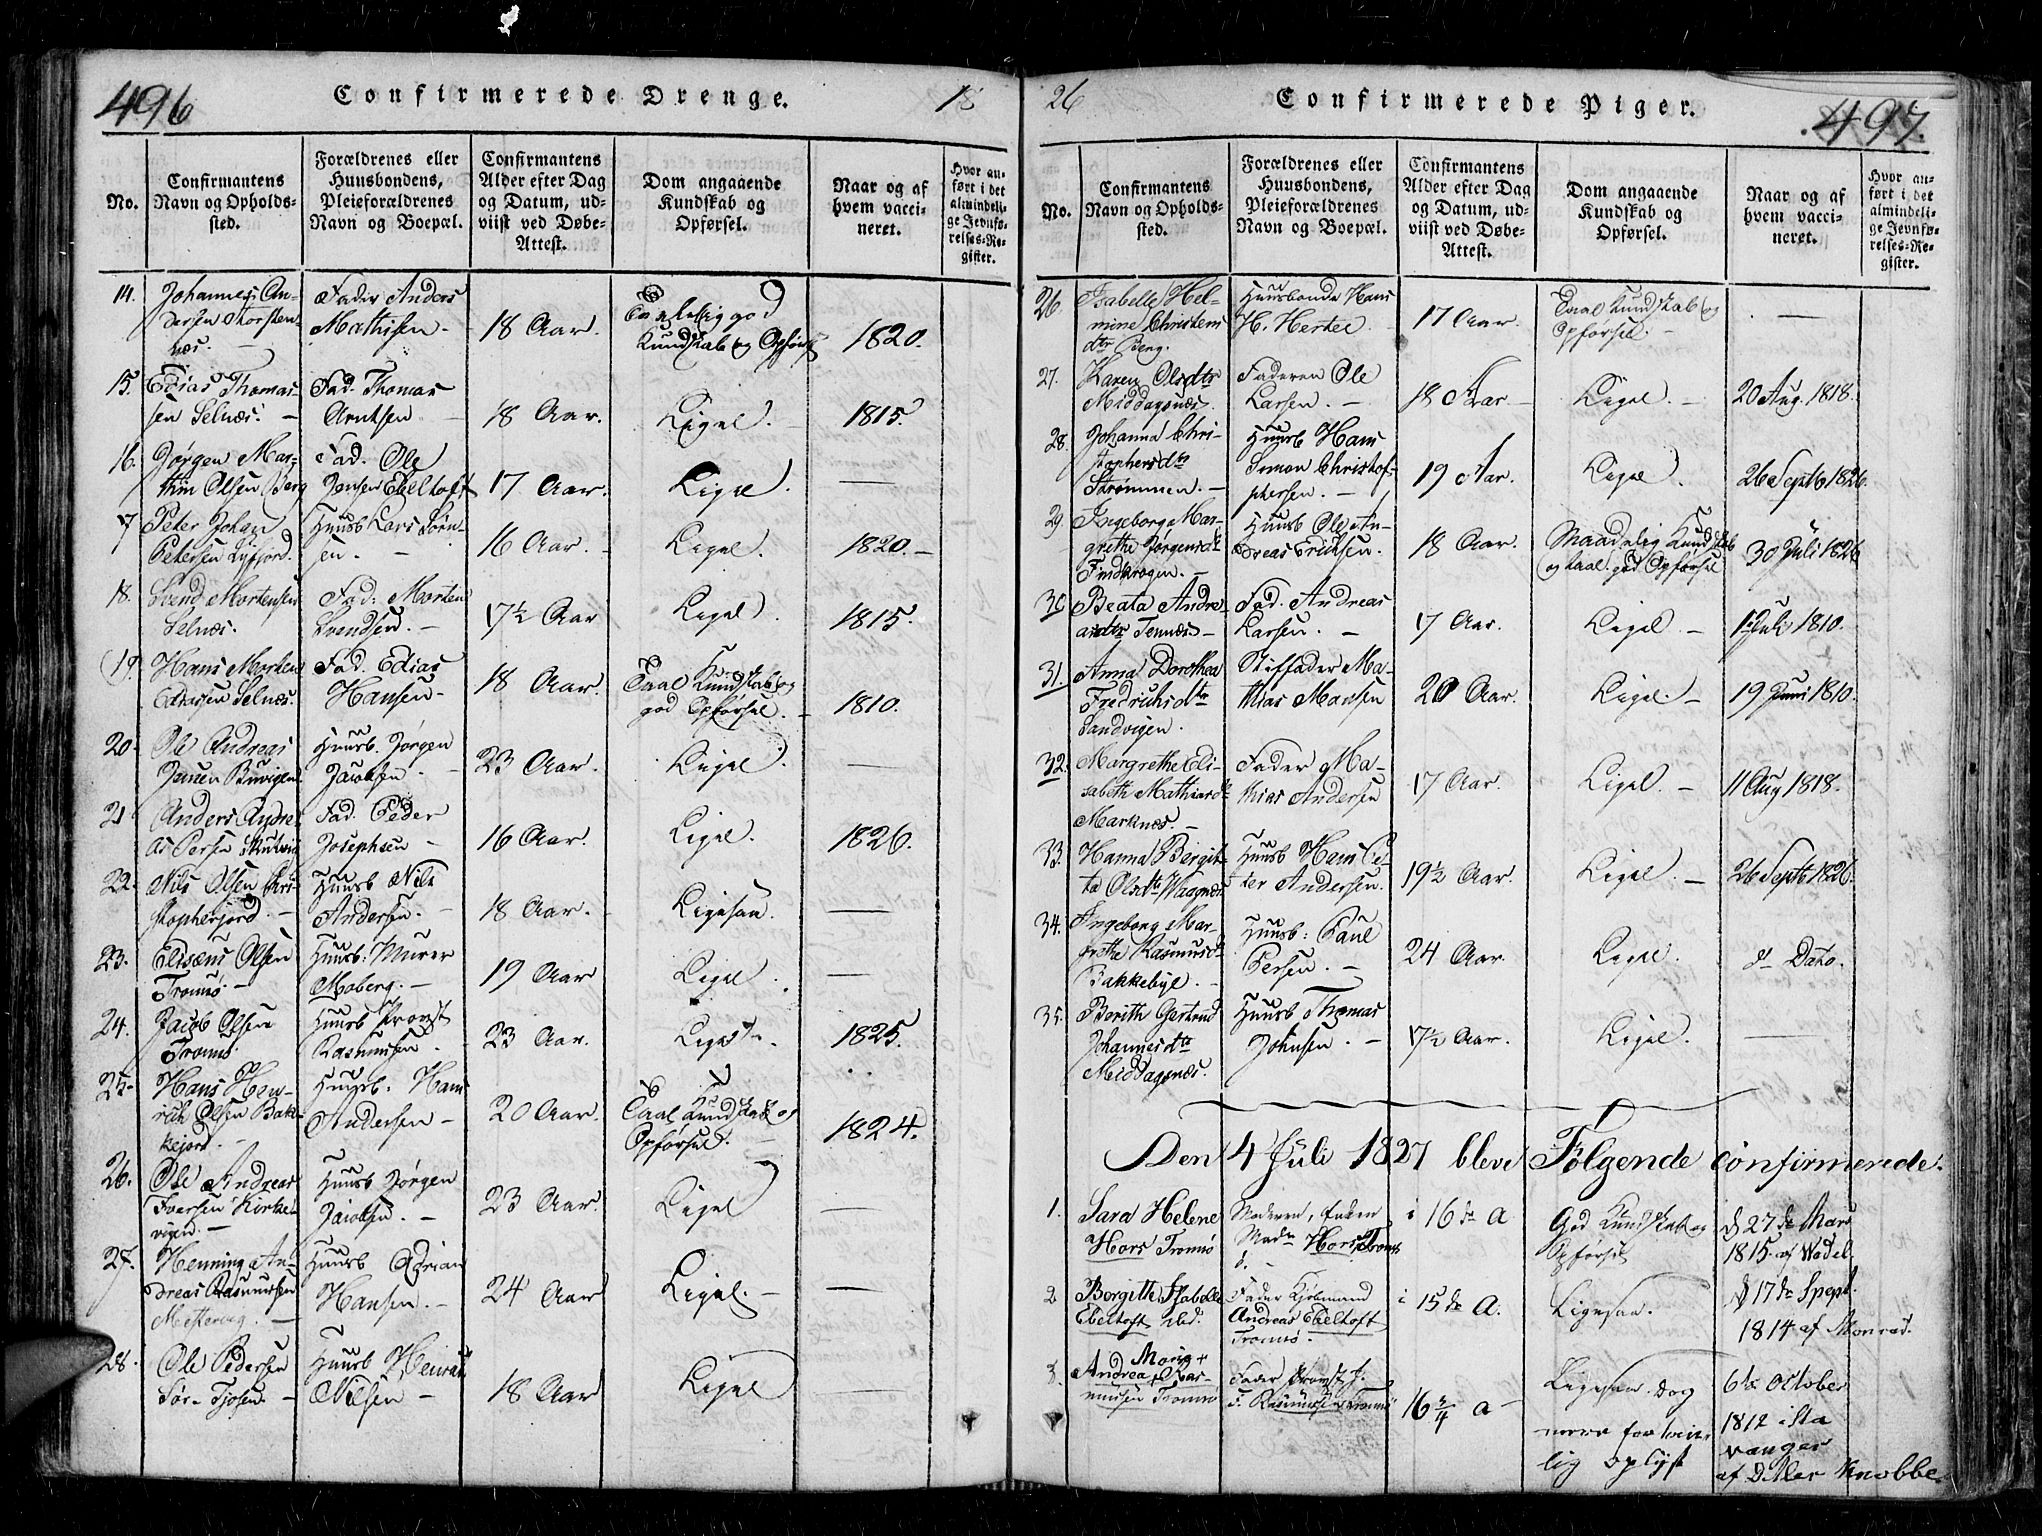 496
Confirmerede Drenge.
18
No.
Confirmantens
Navn og Opholds-
sted.
Forældrenes eller
Huusbondens,
Pleieforældrenes
Navn og Boepæl.
Confirmantens
Alder efter Dag
og Datum, ud-
viist ved Døbe-
Attest.
Dom angaaende
Kundskab og
Opførsel.
Naar og af
hvem vacci-
neret.
Hvor an-
ført i det
almindeli-
ge Jevnfø-
relses-Re-
gister.
14.
Johannes An-
dersen Thorsten-
næs.
Fader Anders
Mathisen
18 Aar.
Taalelig god
Kundskab og Opførsel
1820.
15.
Edias Thomas-
sen Selnæs.
Fad. Thomas
Arntsen
18 Aar.
Ligel.
1815.
16.
Jørgen Mar-
thin Olsen Berg
Fad. Ole
Jensen Ebeltoft
17 Aar.
Ligel.
17
Peter Johan
Petersen Lyfjord.
Huusb Lars Sørn-
sen.
16 Aar.
Ligel.
1820.
18.
Svend Mortensen
Selnæs.
Fad: Morten
Svendsen.
17½ Aar
Ligel.
1815.
19.
Hans Morten
Ediassen Selnæs.
Fad. Edias
Hansen
18 Aar.
Taal Kundskab og
god Opførsel.
1810.
20.
Ole Andreas
Jensen Buvigen
Huusb. Jørgen
Jacobsen.
23 Aar.
Ligel.
21
Anders Andre-
as Persen
Fad. Peder
Josephsen
16 Aar.
Ligel.
1826.
22.
Nils Olsen Chri-
stopherjord.
Huusb Nils
Andersen.
18 Aar.
Ligesaa.
23.
Elisæus Olsen
Tromsø.
Huusb: Murer
Moberg.
19 Aar
Ligel.
24.
Jacob Olsen
Tromsø.
Huusb Provst
Rasmussen.
23 Aar.
1825.
25.
Hans Hen-
rich Olsen Bak-
kejord.
Huusb. Hans
Andersen
20 Aar.
Taal Kundskab og
Opførsel.
1824.
26.
Ole Andreas
Iversen Kirke-
vigen.
Huusb Jørgen
Jacobsen.
23 Aar.
Ligel
27.
Henning An-
dreas Rasmussen
Mestervig.
Huusb Adrian
Hansen.
24 Aar
Ligel.
28.
Ole Pedersen
Sør-Tjosen
Huusb Henrik
Nilsen
18 Aar
Ligel
26
Confirmerede Piger.
497.
No.
Confirmantens
Navn og Opholds-
sted.
Forældrenes eller
Huusbondens,
Pleieforældrenes
Navn og Boepæl.
Confirmantens
Alder efter Dag
og Datum, ud-
viist ved Døbe-
Attest.
Dom angaaende
Kundskab og
Opførsel.
Naar og af
hvem vacci-
neret.
Hvor an-
ført i det
almindeli-
ge Jevnfø-
relses-Re-
gister.
26.
Isabelle Hel-
mine Christens
dtr Berg.
Huusbonde Hans
H.
17 Aar.
Taal Kundskab og
Opførsel.
27.
Karen Olsdtr
Middagsnæs.
Faderen Ole
Larsen.
18 Aar
Ligel.
20 Aug. 1818.
28.
Johanna Chri-
stophersdtr
Strømmen.
Huusb Hans
Simon Christof-
phersen.
19 Aar.
Ligel.
26 Septb 1826.
29.
Ingeborg Mar-
grethe Jørgensdtr
Findkrogen.
Huusb Ole An-
dreas Erichsen.
18 Aar.
Maadelig Kundskab
og taal. god Opførsel
30 Juli 1826
30
Beata Andre-
asdtr Tennæs
Fad. Andreas
Larsen.
17 Aar.
Ligel
1 Juli 1810.
31.
Anna Dorothea
Fredrichsdtr
Sandvigen.
Stiffader Ma-
thias Monsen
20 Aar.
Ligel.
19 Juni 1810.
32.
Margrethe Eli-
sabeth Mathiasdtr
Marknæs.
Fader Ma-
thias Andersen
17 Aar.
Ligel.
11 Aug 1818.
33.
Hanna Bergit-
ta Olsdtr Waagnæs
Huusb Hans Pe-
ter Andersen.
19½ Aar.
Ligel.
26 Septb 1826.
34.
Ingeborg Mar-
grethe Rasmusdtr
Bakkebye.
Huusb: Paul
Persen.
24 Aar.
Ligel.
d Dato.
35.
Berith Gertrud
Johannesdtr
Middagsnæs.
Huusb Thomas
Johnsen.
17½ Aar.
Ligel.
Den 4 Juli 1827 bleve Følgende confirmerede.
1.
Sara Helene
Hors Tromsø
Moderen, Enken
Madm Hors, Tromsø
i 16de A
God Kundskab og
Opførsel
d 27de Mars
1815 af Wedel.
2
Borgitte Isabelle
Ebeltoft ibid.
Fader Kjøbmand
Andreas Ebeltoft
Tromsø.
i 15de A.
Ligesaa.
d 17de Sept.
1814 af Monrad.
3.
Andrea Maria Ras-
mussen Tromsø
Fader Provst J.
F. Rasmussen Tromsø
16 3/4 a
Ligesaa. dog
mere fortrin-
lig oplyst
6te October
1812 i Sta
vanger
af Ditlev Knobbe.